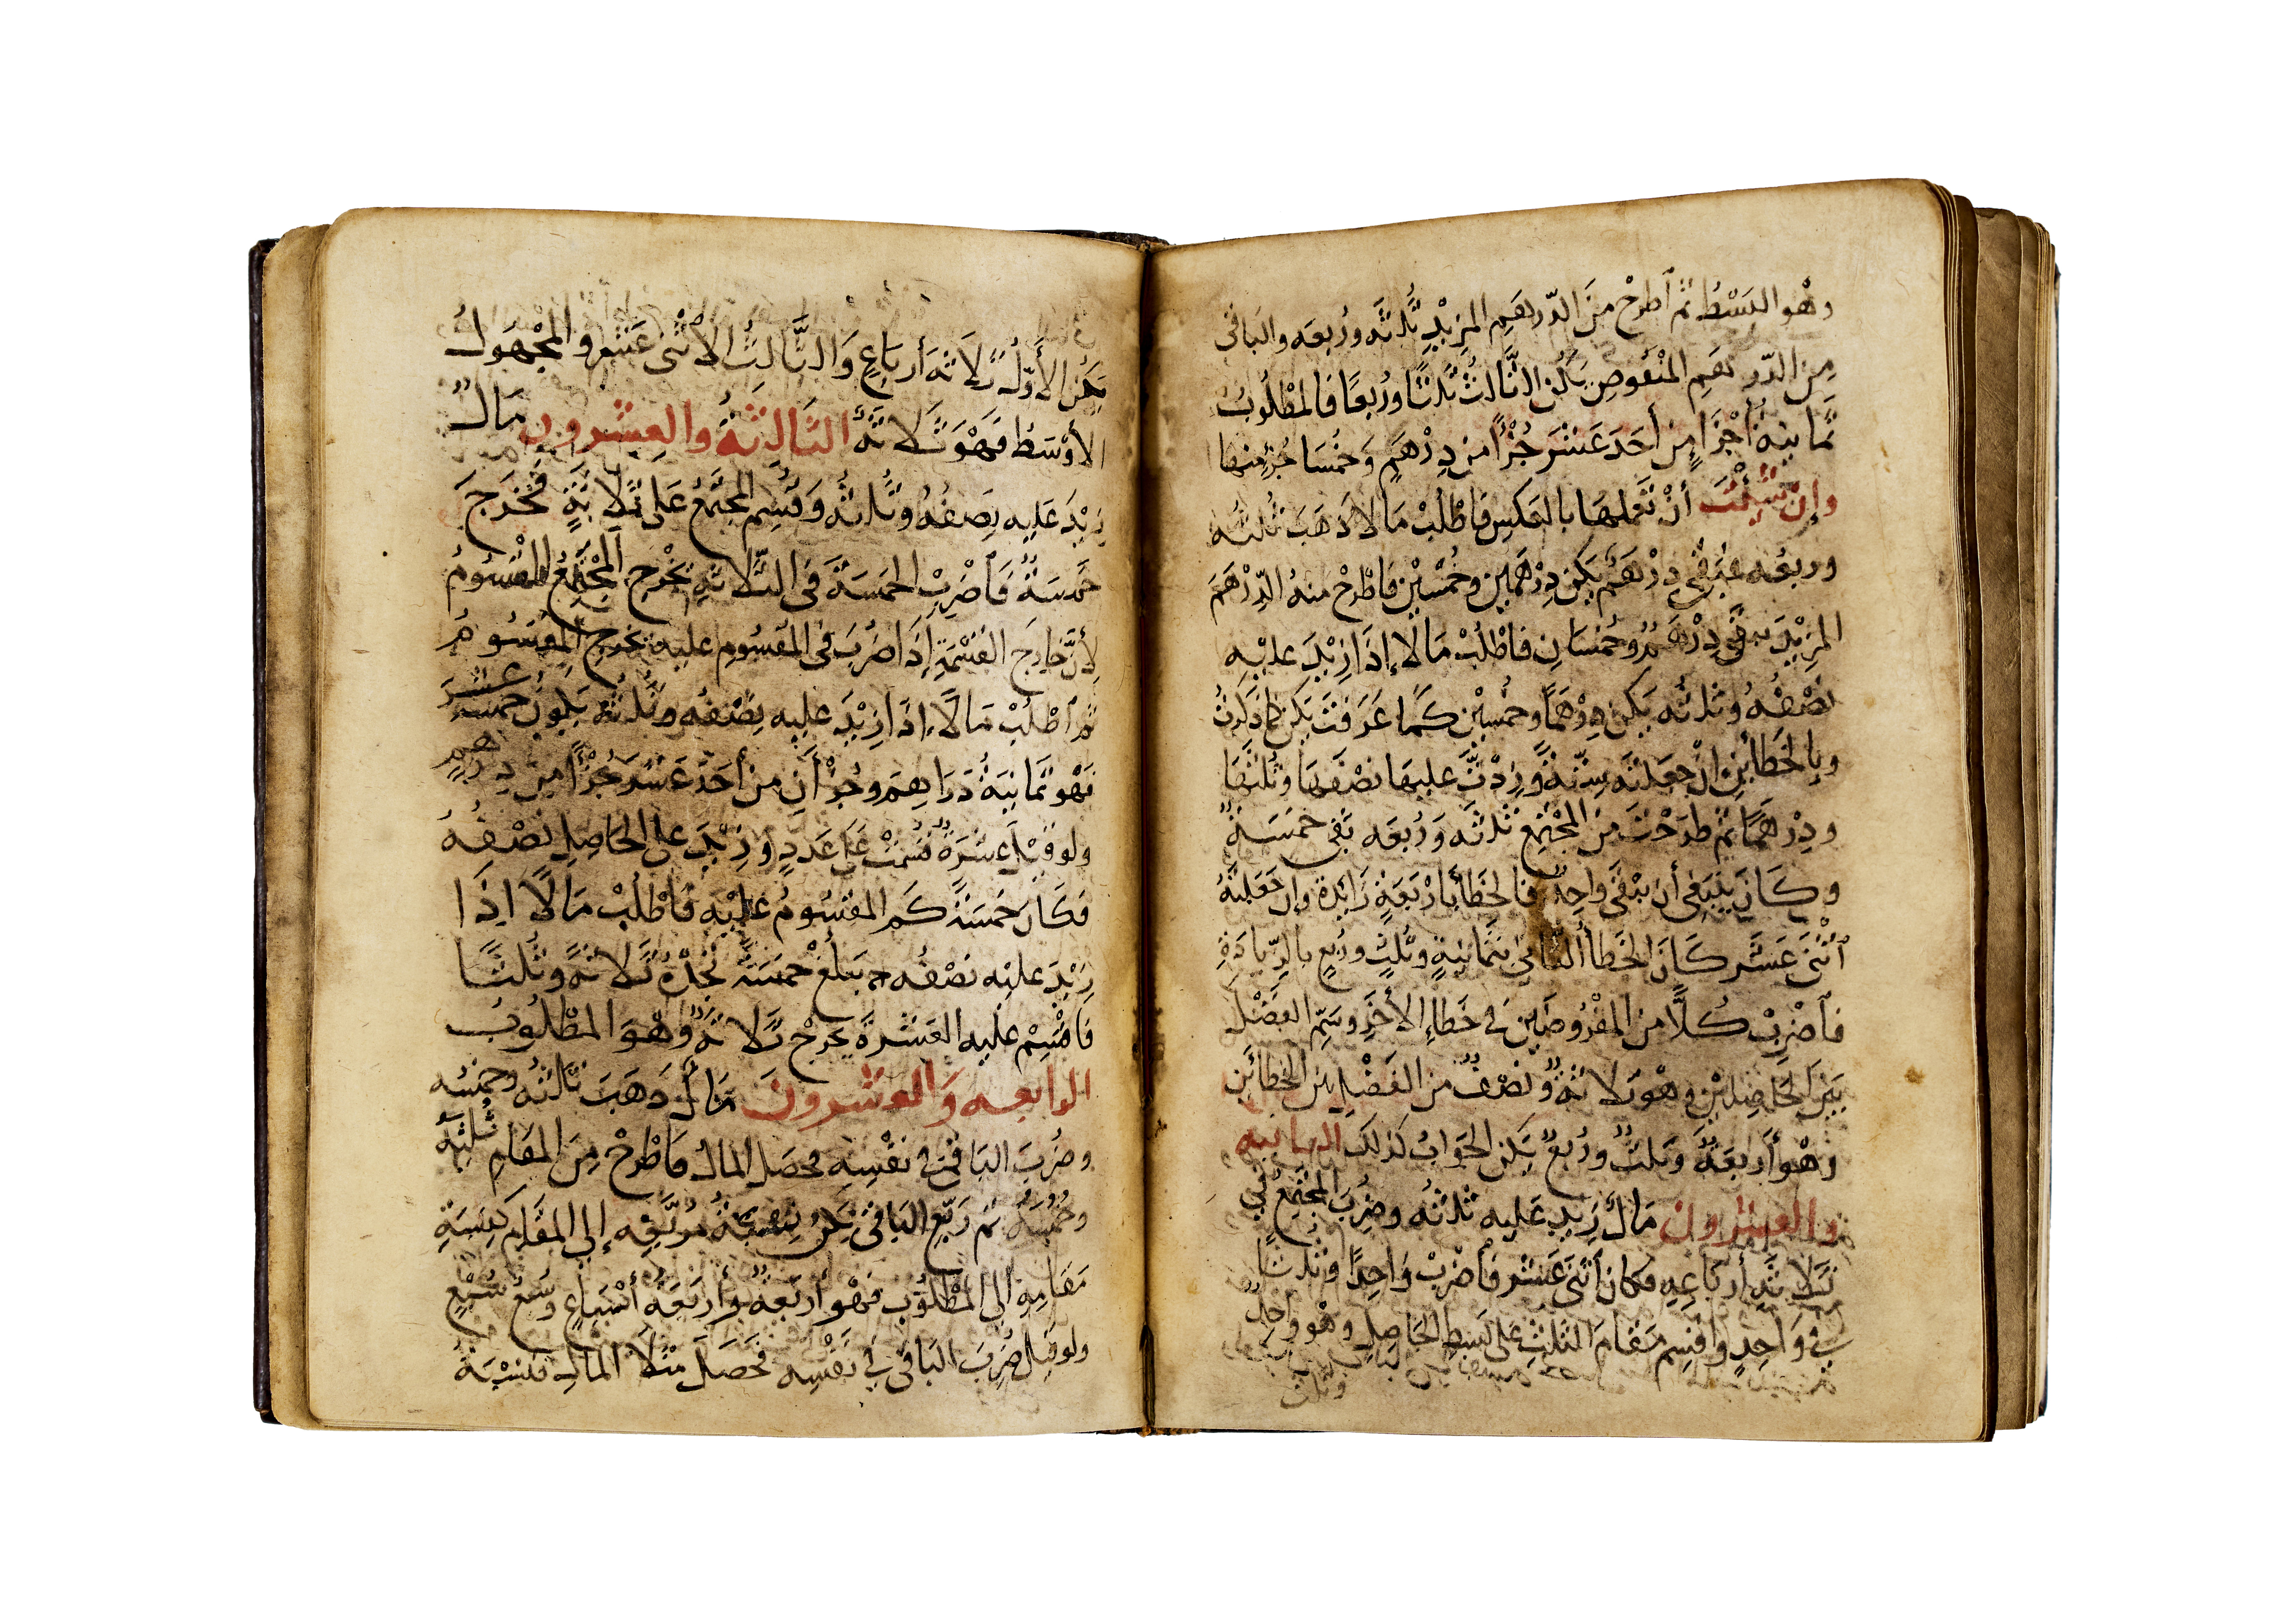 وهو البسط ثم اطرح من الدرهم المزيد ثلثه وربعه والباقي
من الدرهم المنقوص يكن الثالث ثلثا وربعا فالمطلوب
ثمانية أجزاء من أحد عشر جزءا من درهم وخمسا جزء منها
وإن شئت أن تعملها بالعكس فاطلب مالا ذهب ثلثه
وربعه فبقي درهم يكن درهمين وخمسين فاطرح منه الدرهم
المزيد يبقى درهم وخمسان فاطلب مالا إذا زيد عليه
نصفه وثلثه يكن درهما وخمسين كما عرفت يكن كما ذكرت
وبالخطأين إن جعلته ستة وزدت عليها نصفها وثلثها
ودرهما ثم طرحت من المجتمع ثلثه وربعه بقي خمسة
وكان ينبغي أن يبقى واحد فالخطأ بأربعة زائدة وإن جعلته
اثنى عشر كان الخطأ الثاني بثمانية وثلث وربع بالزيادة
فاضرب كلا من المفروضين في خطاء الأخر وسم الفضل
بين الحاصلين وهو ثلاثة ونصف من الفضل بين الخطأين
وهو أربعة وثلث وربع يكن الجواب كذلك الثانية
والعشرون مال زيد عليه ثلثه وضرب المجتمع في
ثلاثة أرباعه فكان اثنى عشر فاضرب واحدا وثلثا
في واحد واقسم مقام الثلث على بسط الحاصل وهو واحد
وثلث
يكن الأول ثلاثة أرباع والثالث الاثنى عشر والمجهول
الأوسط فهو ثلاثة الثالثة والعشرون مال
زيد عليه نصفه وثلثه وقسم المجتمع على ثلاثة فخرج
خمسة فاضرب الخمسة في الثلاثة يخرج المجتمع المقسوم
لأن خارج القسمة إذا ضرب في المقسوم عليه يخرج المقسوم
ثم اطلب مالا إذا زيد عليه نصفه وثلثه يكون خمسة عشر
فهو ثمانية دراهم وجزأن من أحد عشر جزءا من درهم
ولو قيل عشرة قسمت على عدد وزيد على الحاصل نصفه
فكان خمسة كم المقسوم عليه فاطلب مالا إذا
زيد عليه نصفه يبلغ خمسة تجده ثلاثة وثلثا
فاقسم عليه العشرة يخرج ثلاثة وهو المطلوب
الرابعة والعشرون مال ذهب ثلثه وخمسه
وضرب الباقي في نفسه فحصل المال فاطرح من المقام ثلثه
وخمسه ثم ربع الباقي تكن نسبة مربعه إلى المقام كنسبة
مقامه إلى المطلوب فهو أربعة وأربعة أسباع وسبع سبع
ولو قيل ضرب الباقي في نفسه فحصل مثلا المال فنسبة